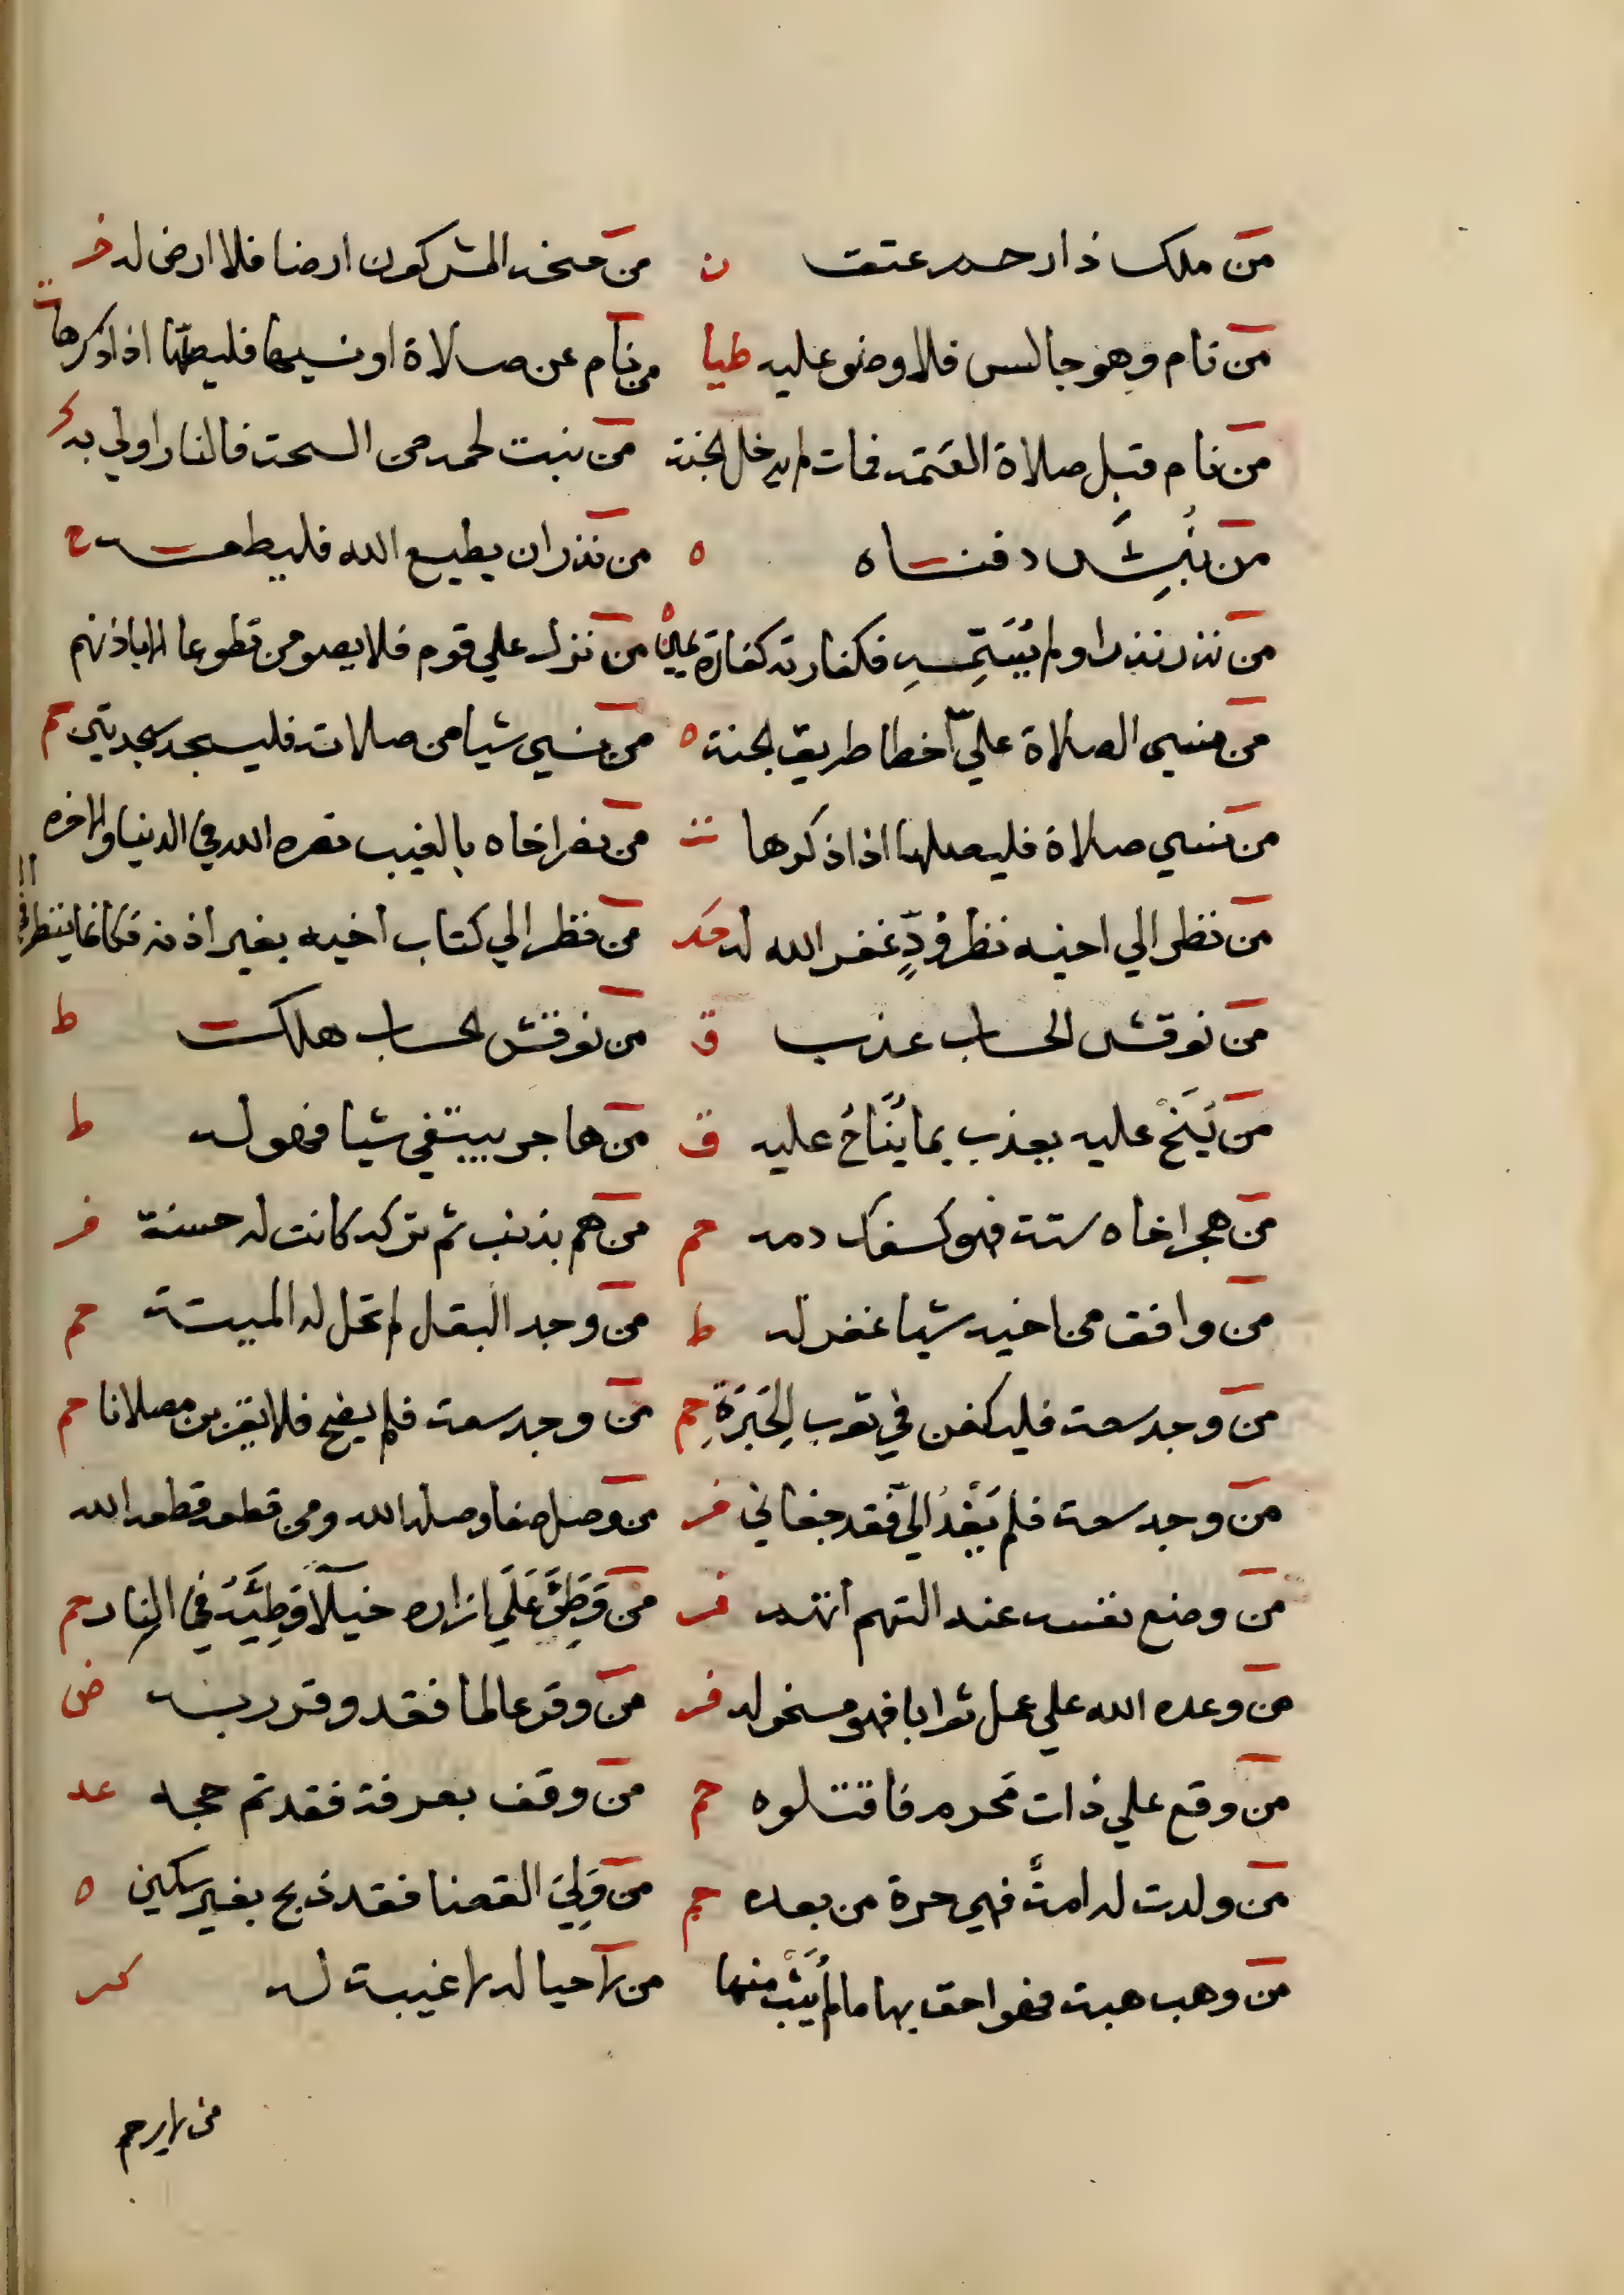 من ملك ذا رحم عتق ن من منحه المشركون ارضا فلا ارض له خر
من نام وهو جالس فلا وضو عليه طيا من نام عن صلاة او نسيها فليصلها اذا ذكرها ت
من نام قبل صلاة العتمة فمات لم يدخل الجنة من نبت لحمه من السحت فالنار اولي به ك
من نُبِشَ دفناه ه من نذر ان يطيع الله فليطعه ح
من نذر نذرا ولم يُسَمِّهِ فكفارته كفارة يمين ه من نزل علي قوم فلا يصومن تطوعا الا باذنهم
من نسي الصلاة عليّ اخطا طريق الجنة ه من نسي شيا من صلاته فليسجد سجدتين حم
من نسي صلاة فليصلها اذا ذكرها ن من نصر اخاه بالغيب نصره الله في الدنيا والاخره
من نظر الي اخيه نظر وُدٍّ غفر الله له من نظر الي كتاب اخيه بغير اذنه فكانما ينظر في ال
من نوقش الحساب عذب ق من نوقش الحساب هلك ط
من يُنَحْ عليه يعذب بما يُنَاحُ عليه ق من هاجر يبتغي شيا فهو له ط
من هجر اخاه سنة فهو كسفك دمه حم من هم بذنب ثم تركه كانت له حسنة فر
من وافق من اخيه شيا غفر له ط من وجد البقل لم تحل له الميتة حم
من وجد سعة فليكفن في ثوب الحِبَرَةِ حم من وجد سعة فلم يضح فلا يقربن مصلانا حم
من وجد سعة فلم يَغْدُ اليّ فقد جفاني فر من وصل صفا وصله الله ومن قطعه قطعه الله
من وضع نفسه عند التهم اتهم فر من وَطِئَ عَلَي ازاره خيلآ وَطِيَه في النار حم
من وعده الله علي عمل ثوابا فهو منجز له فر من وقر عالما فقد وقر ربه ض
من وقع علي ذات مَحرم فاقتلوه حم من وقف بعرفة فقد تم حجه عد
من ولدت له امة فهي حرة من بعده حم من وَلِيَ القضا فقد ذبح بغير سكين ه
من وهب هبة فهو احق بها ما لم يُثَبْ منها من لا حيا له لا غيبة له كر
من لا يرحم